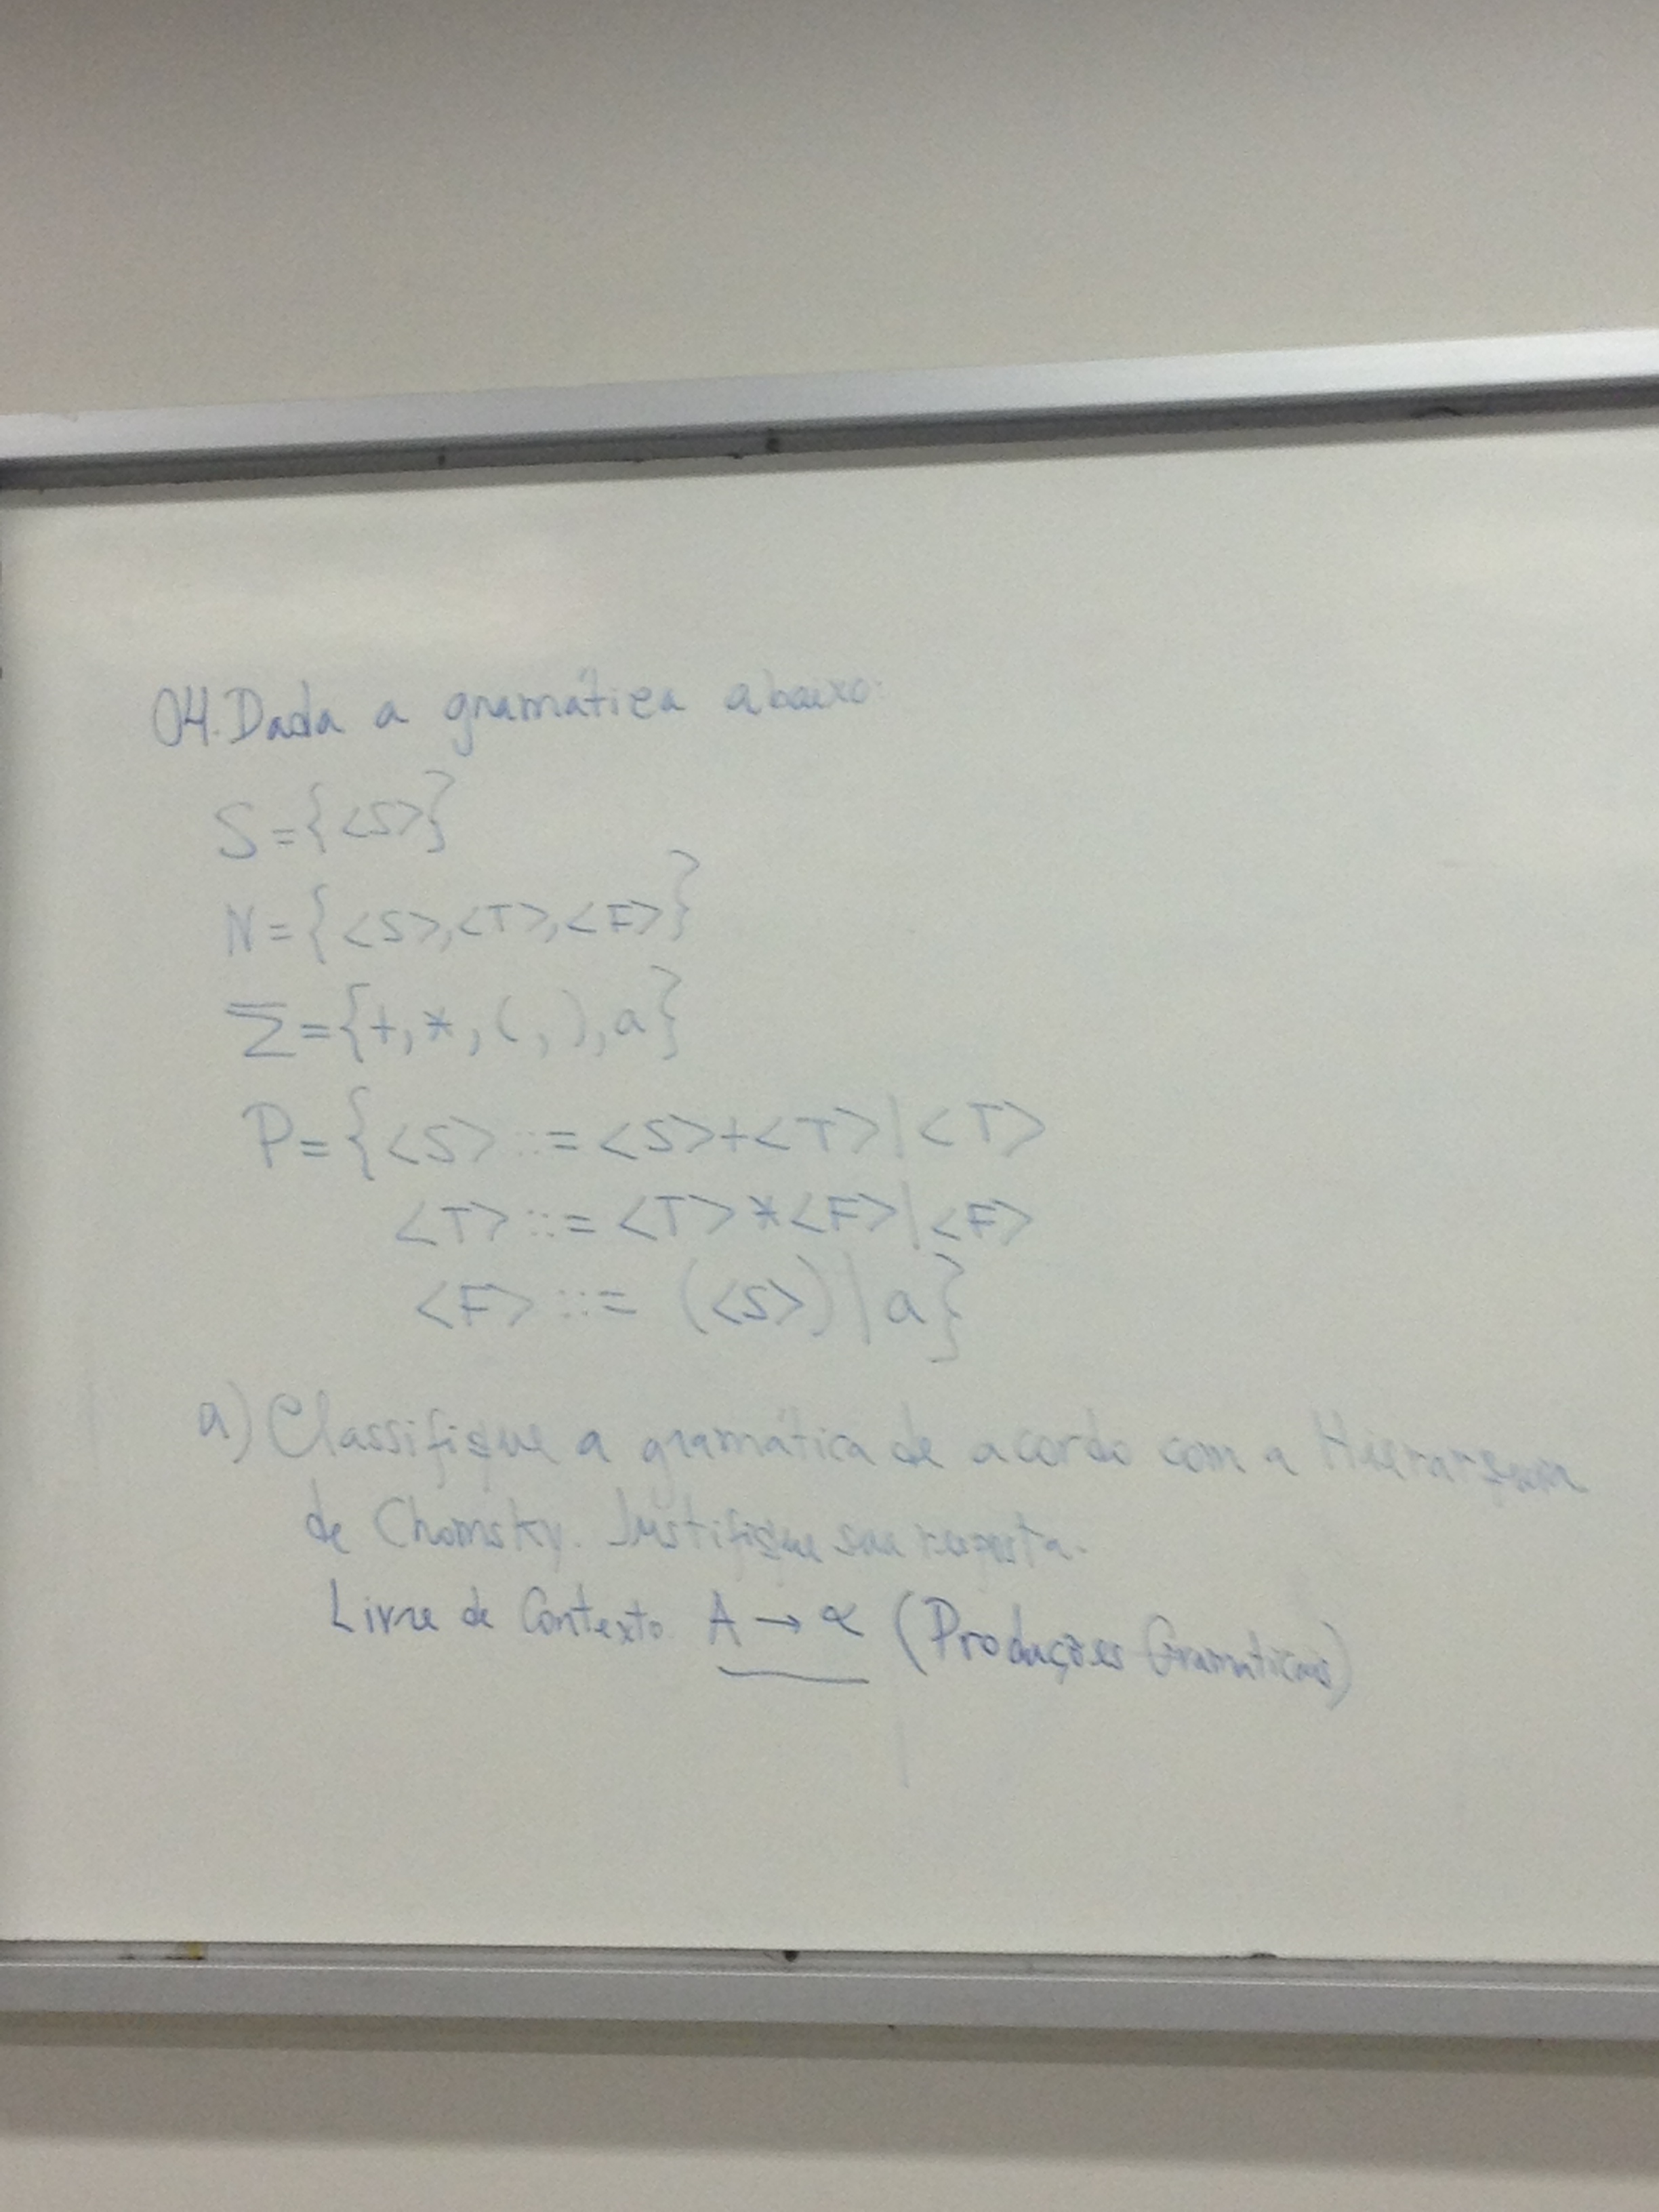 04. Dada a gramática abaixo:
S={<S>}
N={<S>,<T>,<F>}
Σ={+,*,(,),a}
P={<S> ::= <S>+<T>|<T>
<T> ::= <T>*<F>|<F>
<F> ::= (<S>)|a}
a) Classifique a gramática de acordo com a Hierarquia
de Chomsky. Justifique sua resposta.
Livre de Contexto. A → α (Produções Gramaticais)